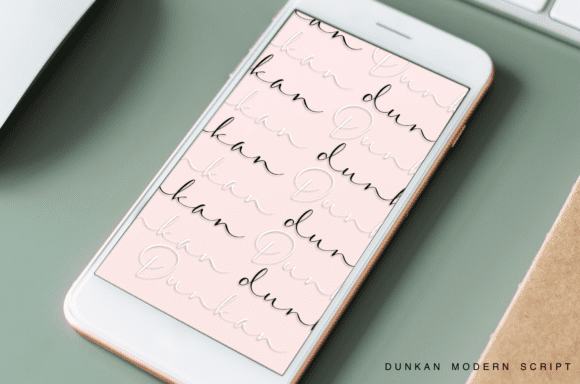 kan Dun
kan dun
kan Dun
kan dun
kan Dun
kan dun
kan Dun
kan dun
Dunkan
DUNKAN MODERN SCRIPT